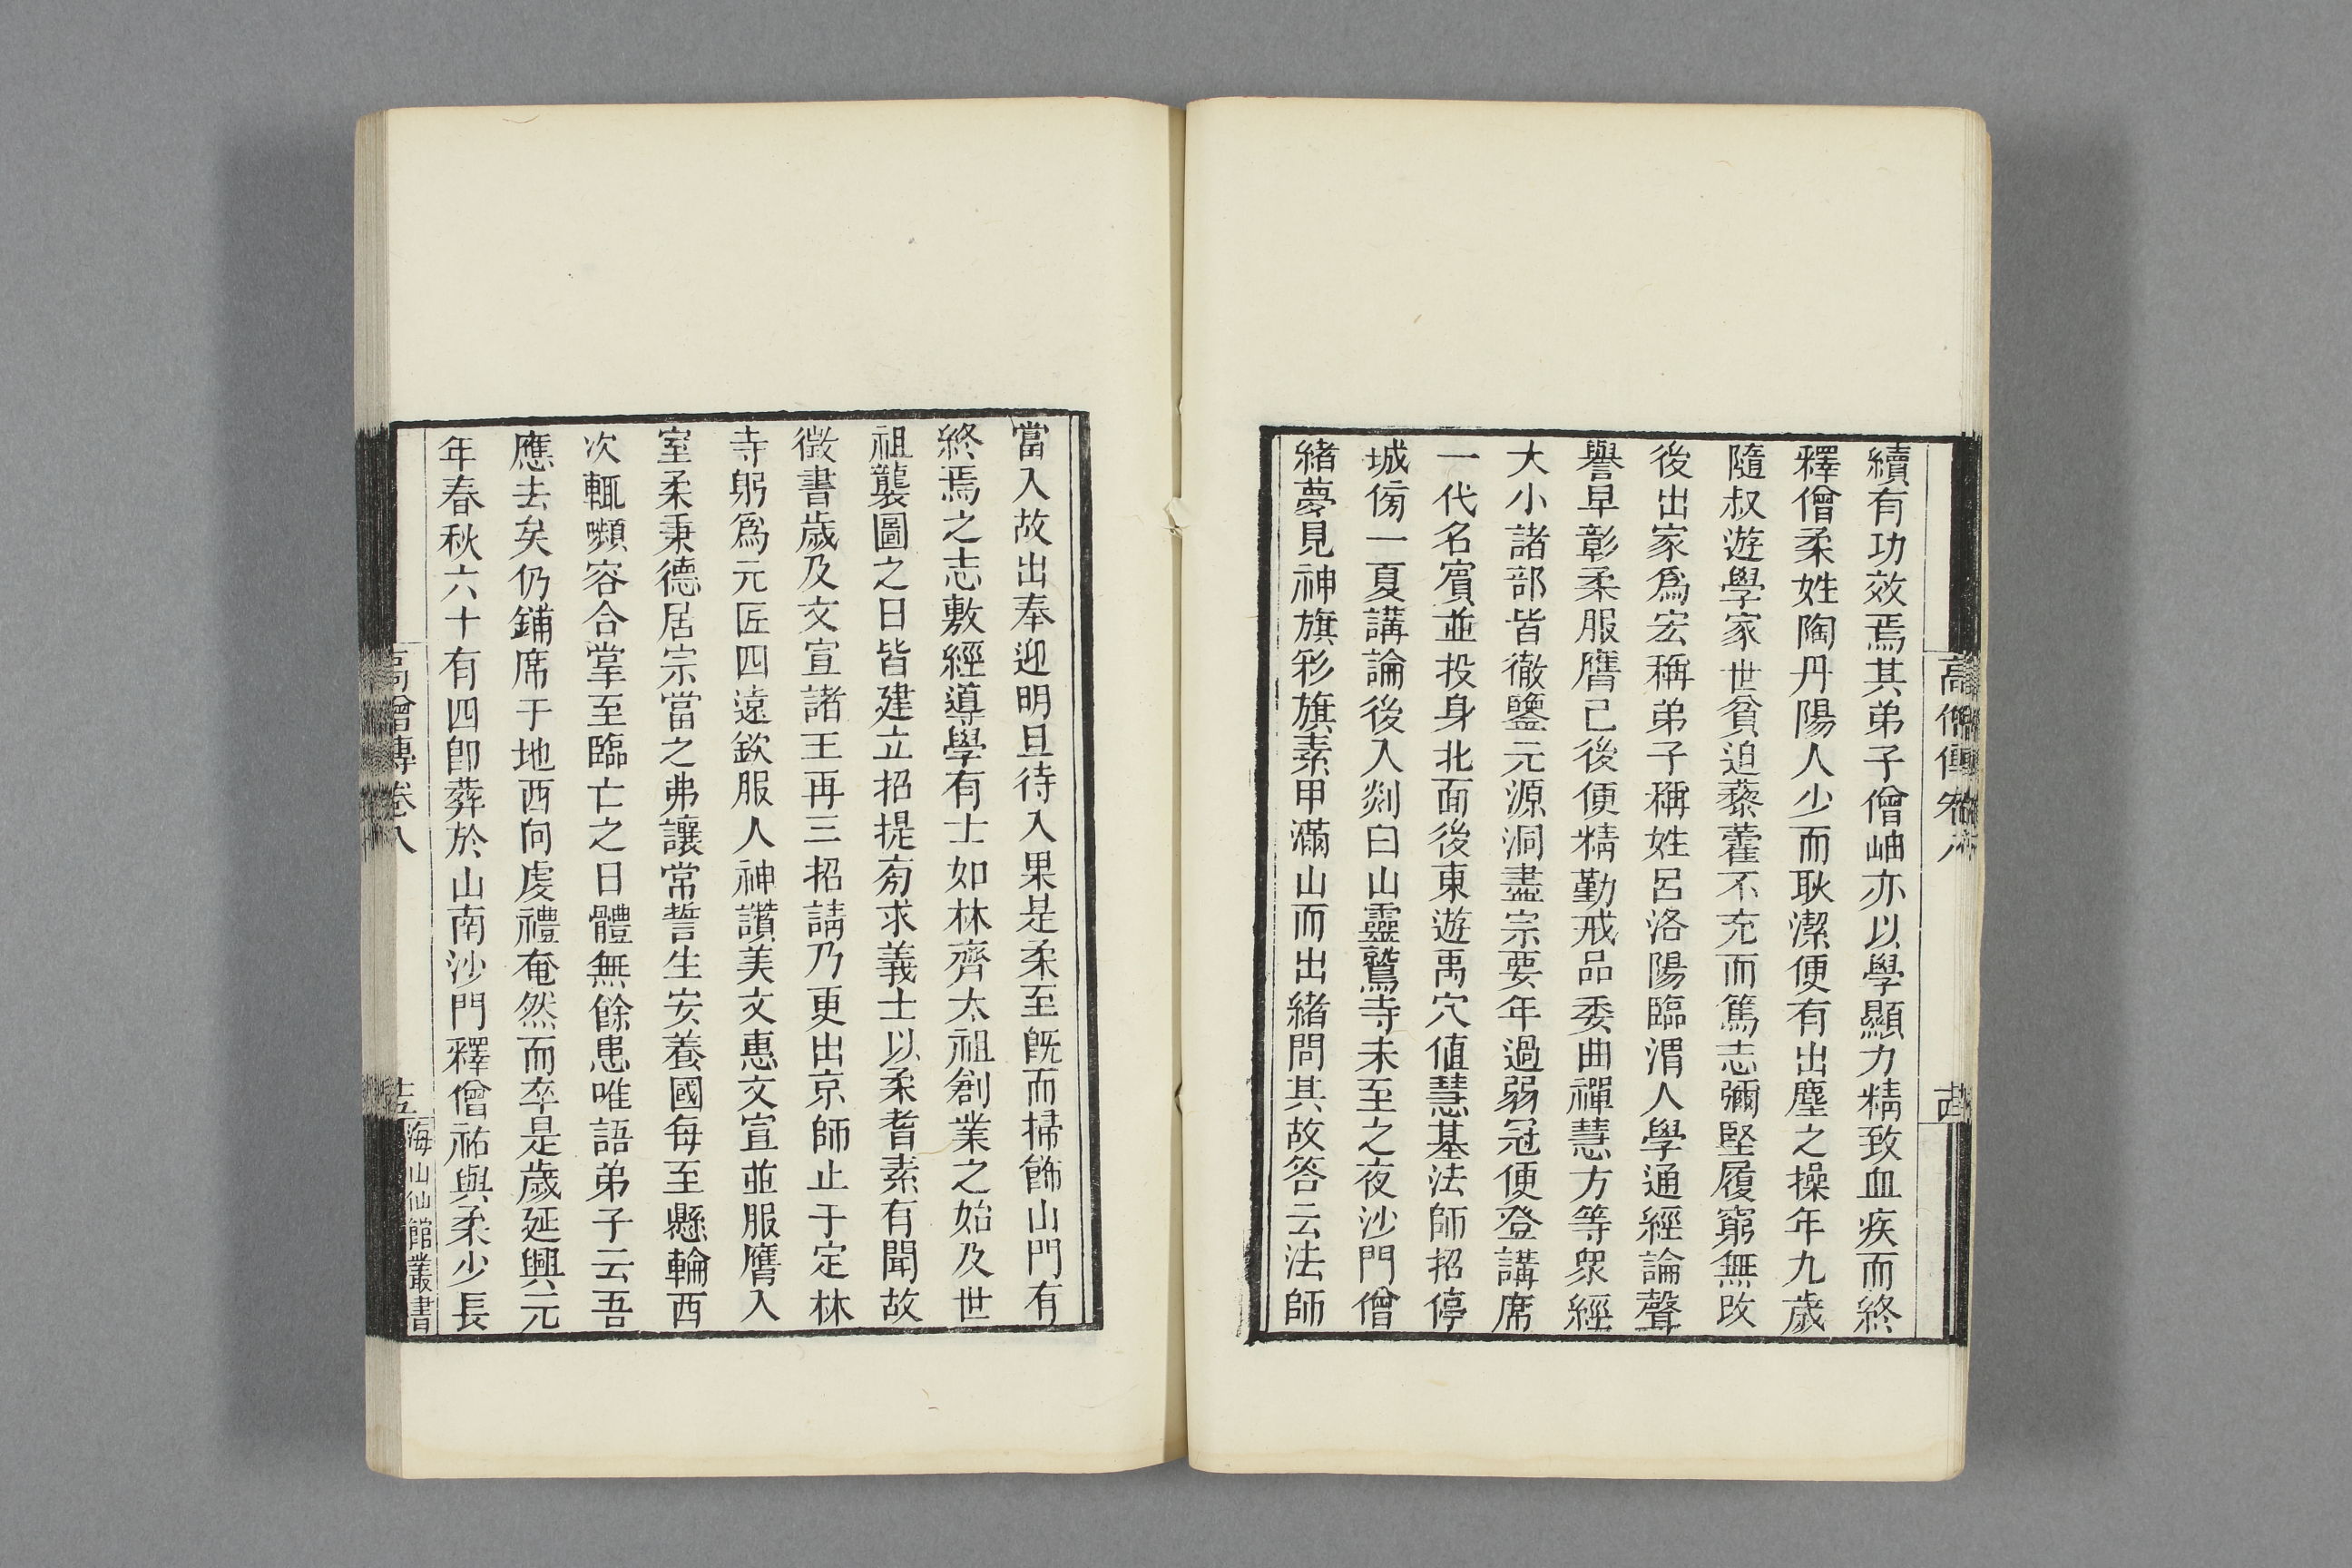 高僧傳卷八
續有功效焉其弟子僧岫亦以學顯力精致血疾而終
釋僧柔姓陶丹陽人少而耿潔便有出塵之操年九歲
隨叔遊學家世貧迫藜藿不充而篤志彌堅履窮無改
後出家爲宏稱弟子稱姓呂洛陽臨渭人學通經論聲
譽早彰柔服膺已後便精勤戒品委曲禪慧方等衆經
大小諸部皆徹鑒元源洞盡宗要年過弱冠便登講席
一代名賓並投身北面後東遊禹穴值慧基法師招停
城傍一夏講論後入剡白山靈鷲寺未至之夜沙門僧
緒夢見神旗彩旗素甲滿山而出緒問其故答云法師
當入故出奉迎明旦待入果是柔至旣而掃飾山門有
終焉之志敷經導學有士如林齊太祖創業之始及世
祖襲圖之日皆建立招提匆求義士以柔耆素有聞故
徵書歲及文宣諸王再三招請乃更出京師止于定林
寺躬爲元匠四遠欽服人神讚美文惠文宣並服膺入
室柔秉德居宗當之弗讓常誓生安養國每至懸輪西
次輒嚬容合掌至臨亡之日體無餘患唯語弟子云吾
應去矣仍鋪席于地西向虔禮奄然而卒是歲延興元
年春秋六十有四卽葬於山南沙門釋僧祐與柔少長
高僧傳卷八
十五
海山仙館叢書